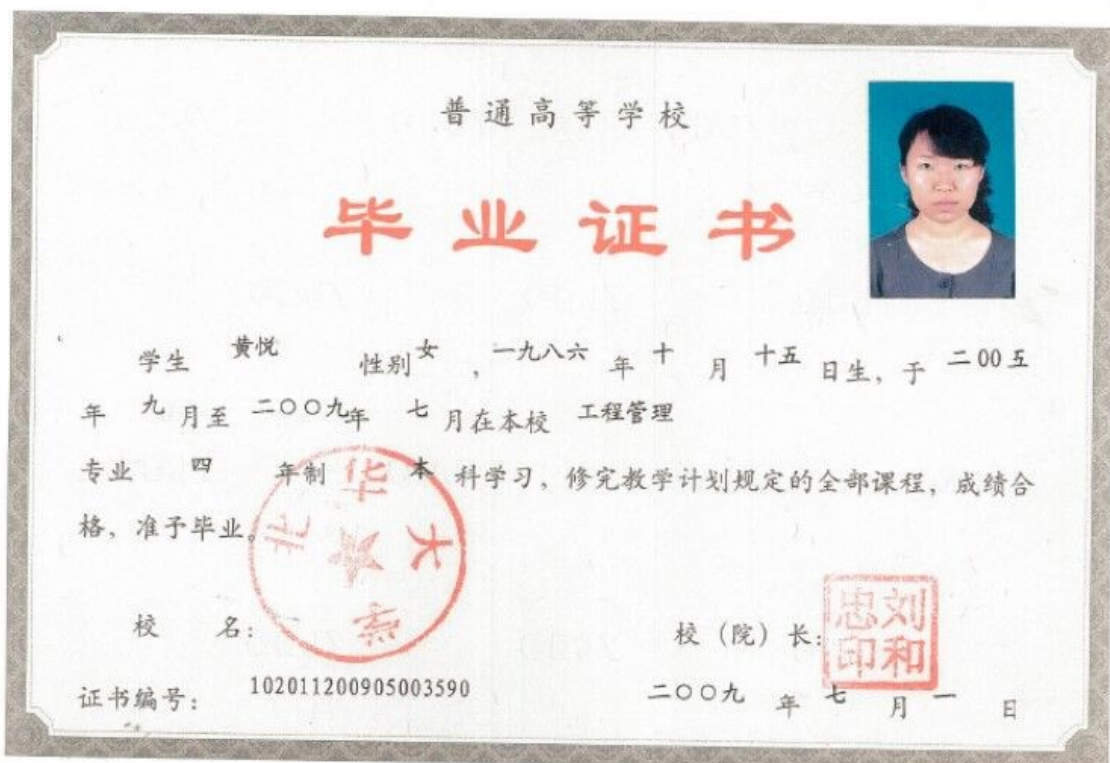 普通高等学校
毕业证书
学生 黄悦 性别 女 , 一九八六 年 十 月 十五 日生, 于 二00五
年 九 月至 二〇〇九年 七 月在本校 工程管理
专业 四 年制 本 科学习, 修完教学计划规定的全部课程, 成绩合
格, 准予毕业。
北华大学
校 名:
校（院）长:
刘和忠印
证书编号: 102011200905003590
二〇〇九 年 七 月 一 日